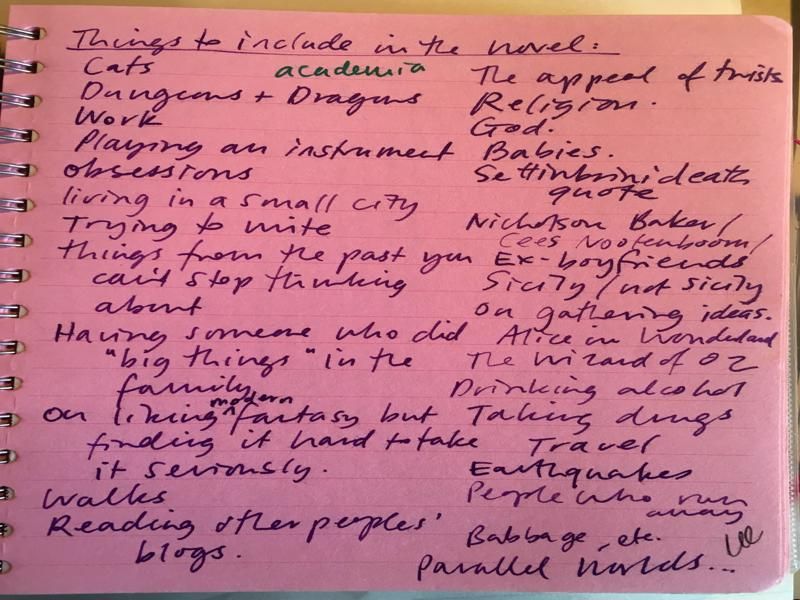 Things to include in the novel:
Cats
academia
Dungeons + Dragons
Work
Playing an instrument
obsessions
living in a small city
Trying to write
things from the past you
can't stop thinking
about
Having someone who did
"big things" in the
family
modern
on liking ^ fantasy but
finding it hard to take
it seriously.
Walks
Reading other peoples'
blogs.
The appeal of twists
Religion.
God.
Babies.
Settimbrini death
quote
Nicholson Baker/
Cees Nootenboom/
Ex-boyfriends
Sicily/not Sicily
on gathering ideas.
Alice in Wonderland
The Wizard of OZ
Drinking alcohol
Taking drugs
Travel
Earthquakes
People who run
away
Babbage, etc.
Parallel Worlds...